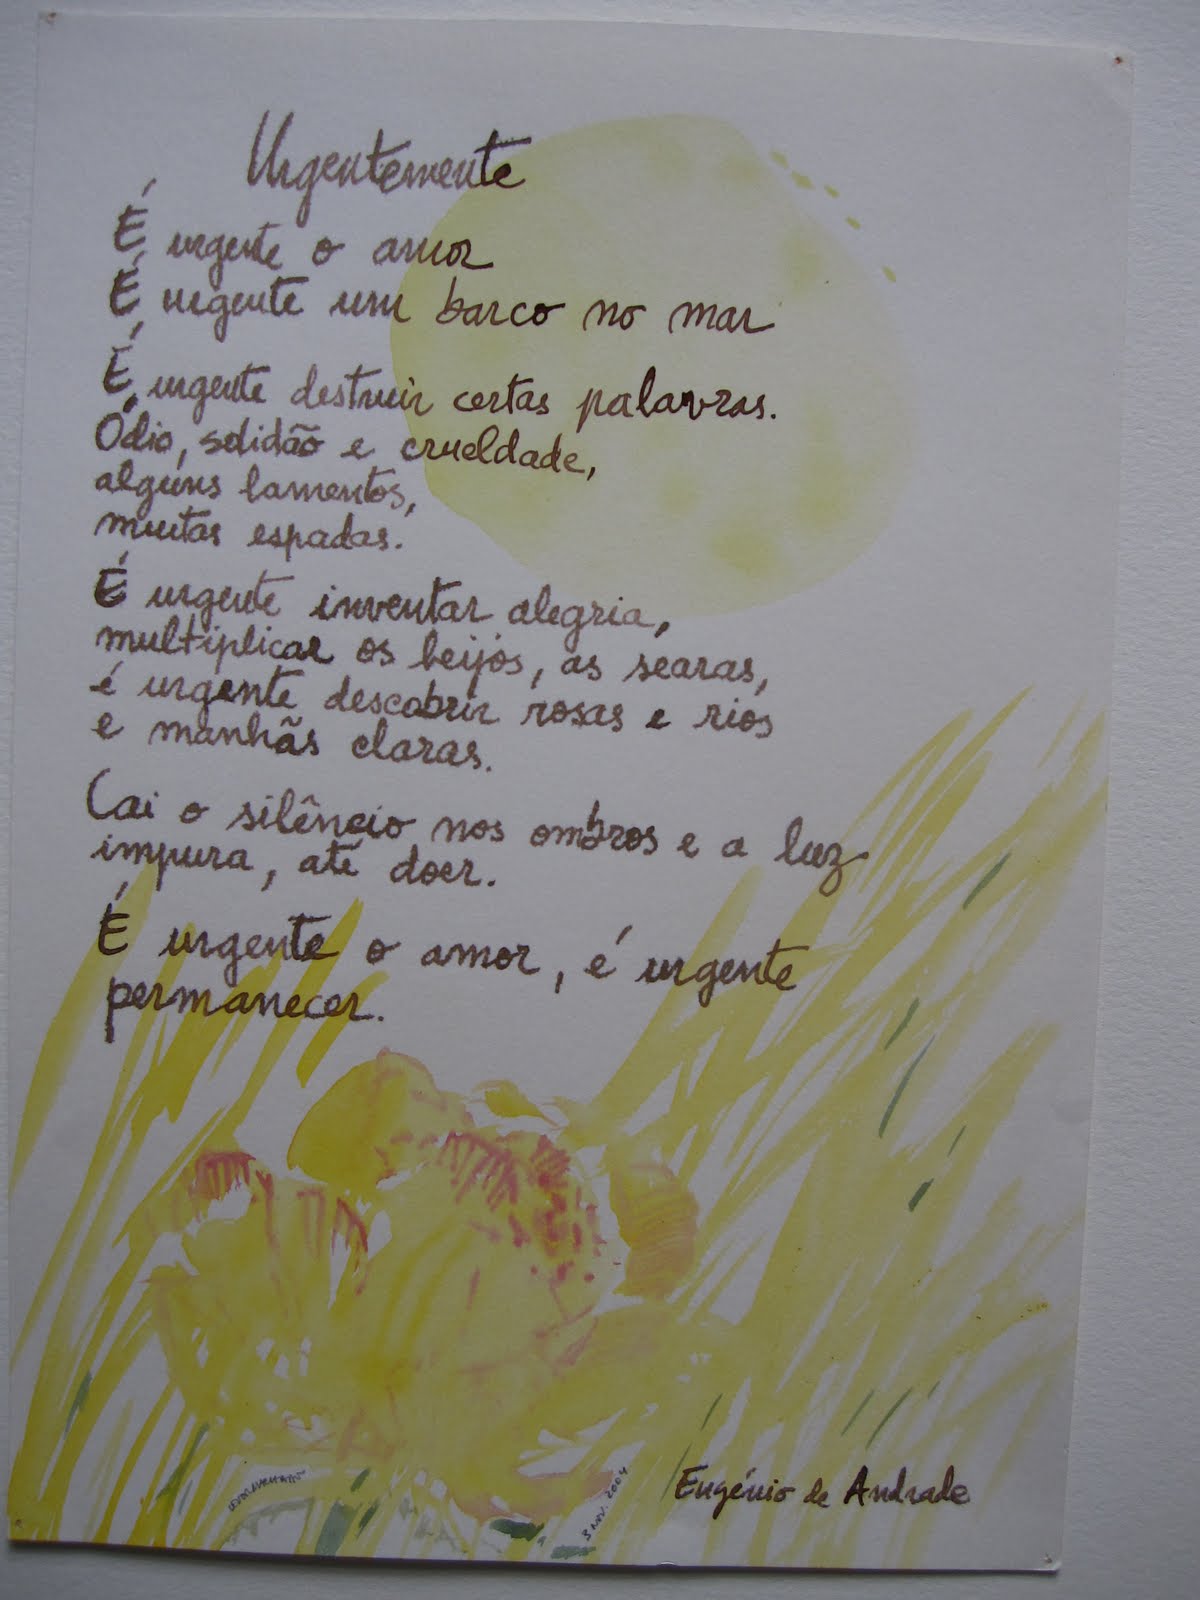 Urgentemente
É urgente o amor
É urgente um barco no mar
É urgente destruir certas palavras.
Ódio, solidão e crueldade,
alguns lamentos,
muitas espadas.
É urgente inventar alegria,
multiplicar os beijos, as searas,
é urgente descobrir rosas e rios
e manhãs claras.
Cai o silêncio nos ombros e a luz
impura, até doer.
É urgente o amor, é urgente
permanecer.
Eugénio de Andrade
3 NOV. 2004